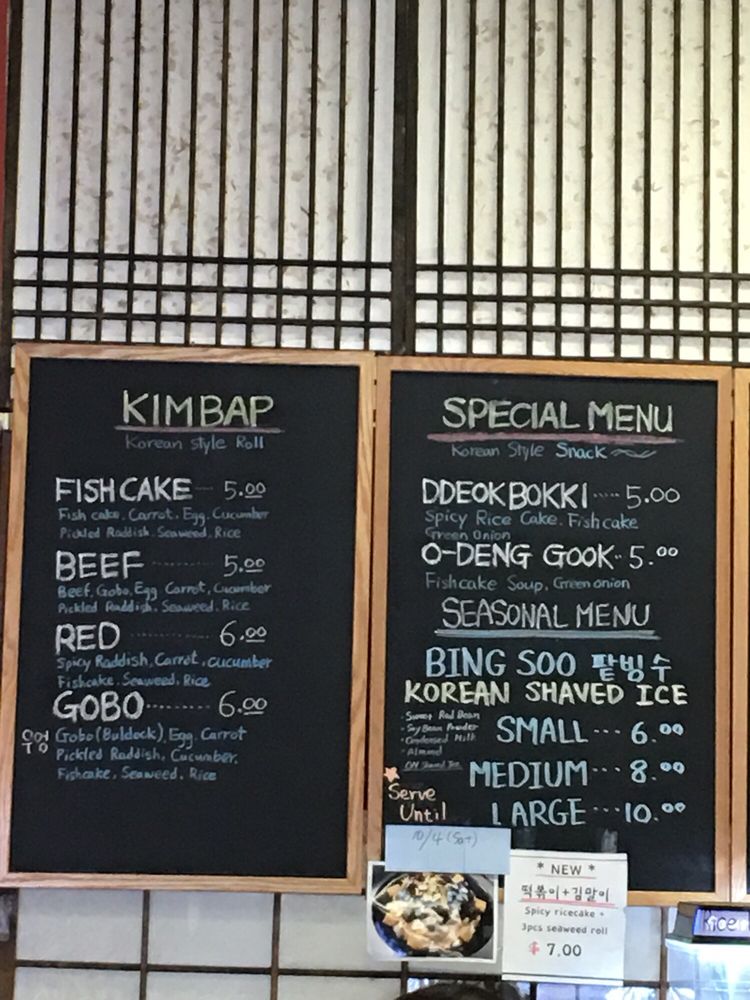 KIMBAP
Korean style Roll
FISH CAKE ... 5.00
Fish cake, Carrot, Egg, Cucumber
Pickled Raddish, Seaweed, Rice
BEEF ........ 5.00
Beef, Gobo, Egg, Carrot, Cucumber
Pickled Raddish, Seaweed, Rice
RED ......... 6.00
Spicy Raddish, Carrot, Cucumber
Fishcake, Seaweed, Rice
GOBO ........ 6.00
우엉
Gobo (Buldock), Egg, Carrot
Pickled Raddish, Cucumber,
Fishcake, Seaweed, Rice
SPECIAL MENU
Korean Style Snack
DDEOKBOKKI ..... 5.00
Spicy Rice Cake, Fishcake
Green Onion
O-DENG GOOK .. 5.00
Fishcake Soup, Green onion
SEASONAL MENU
BING SOO 팥빙수
KOREAN SHAVED ICE
- Sweet Red Bean
- Soy Bean Powder
- Condensed Milk
- Almond
ON Shaved Ice
SMALL ... 6.00
MEDIUM ... 8.00
LARGE ... 10.00
Serve
Until
10/4 (Sat)
* NEW *
떡볶이+김말이
Spicy ricecake +
3pcs seaweed roll
$ 7.00
Rice